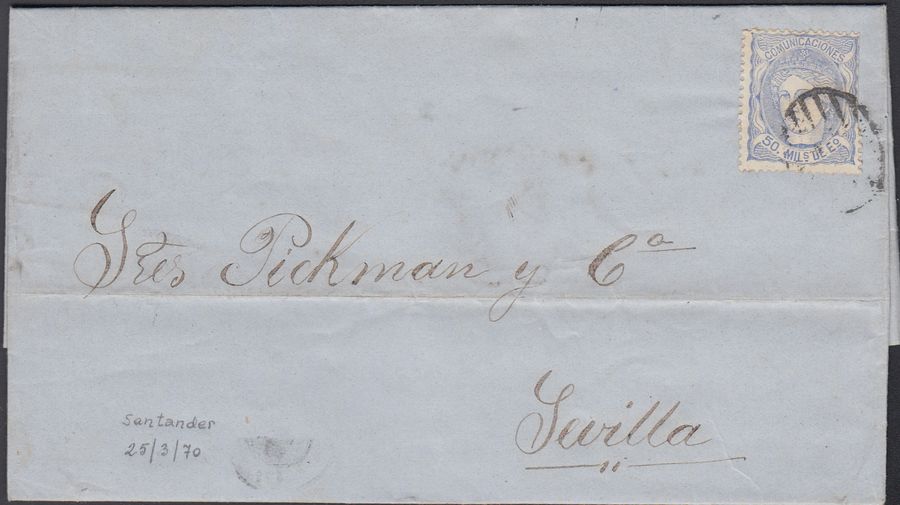 COMUNICACIONES
50. MILS DE Eo
Sres Pickman y Ca
Sevilla
santander
25/3/70